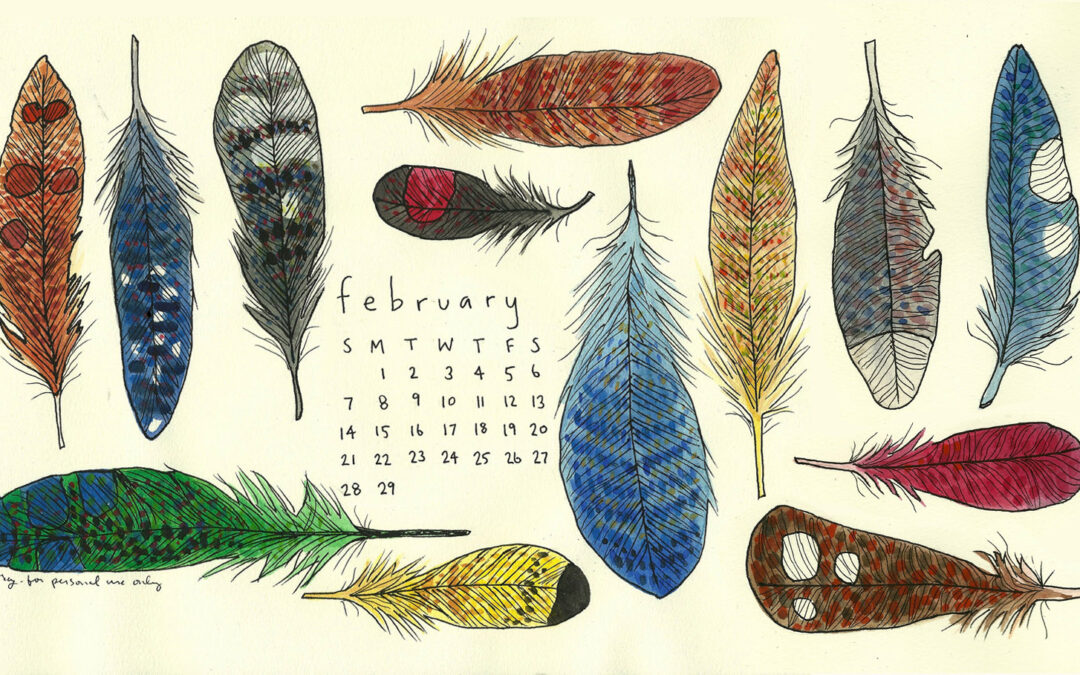 february
S M T W T F S
1 2 3 4 5 6
7 8 9 10 11 12 13
14 15 16 17 18 19 20
21 22 23 24 25 26 27
28 29
for personal use only